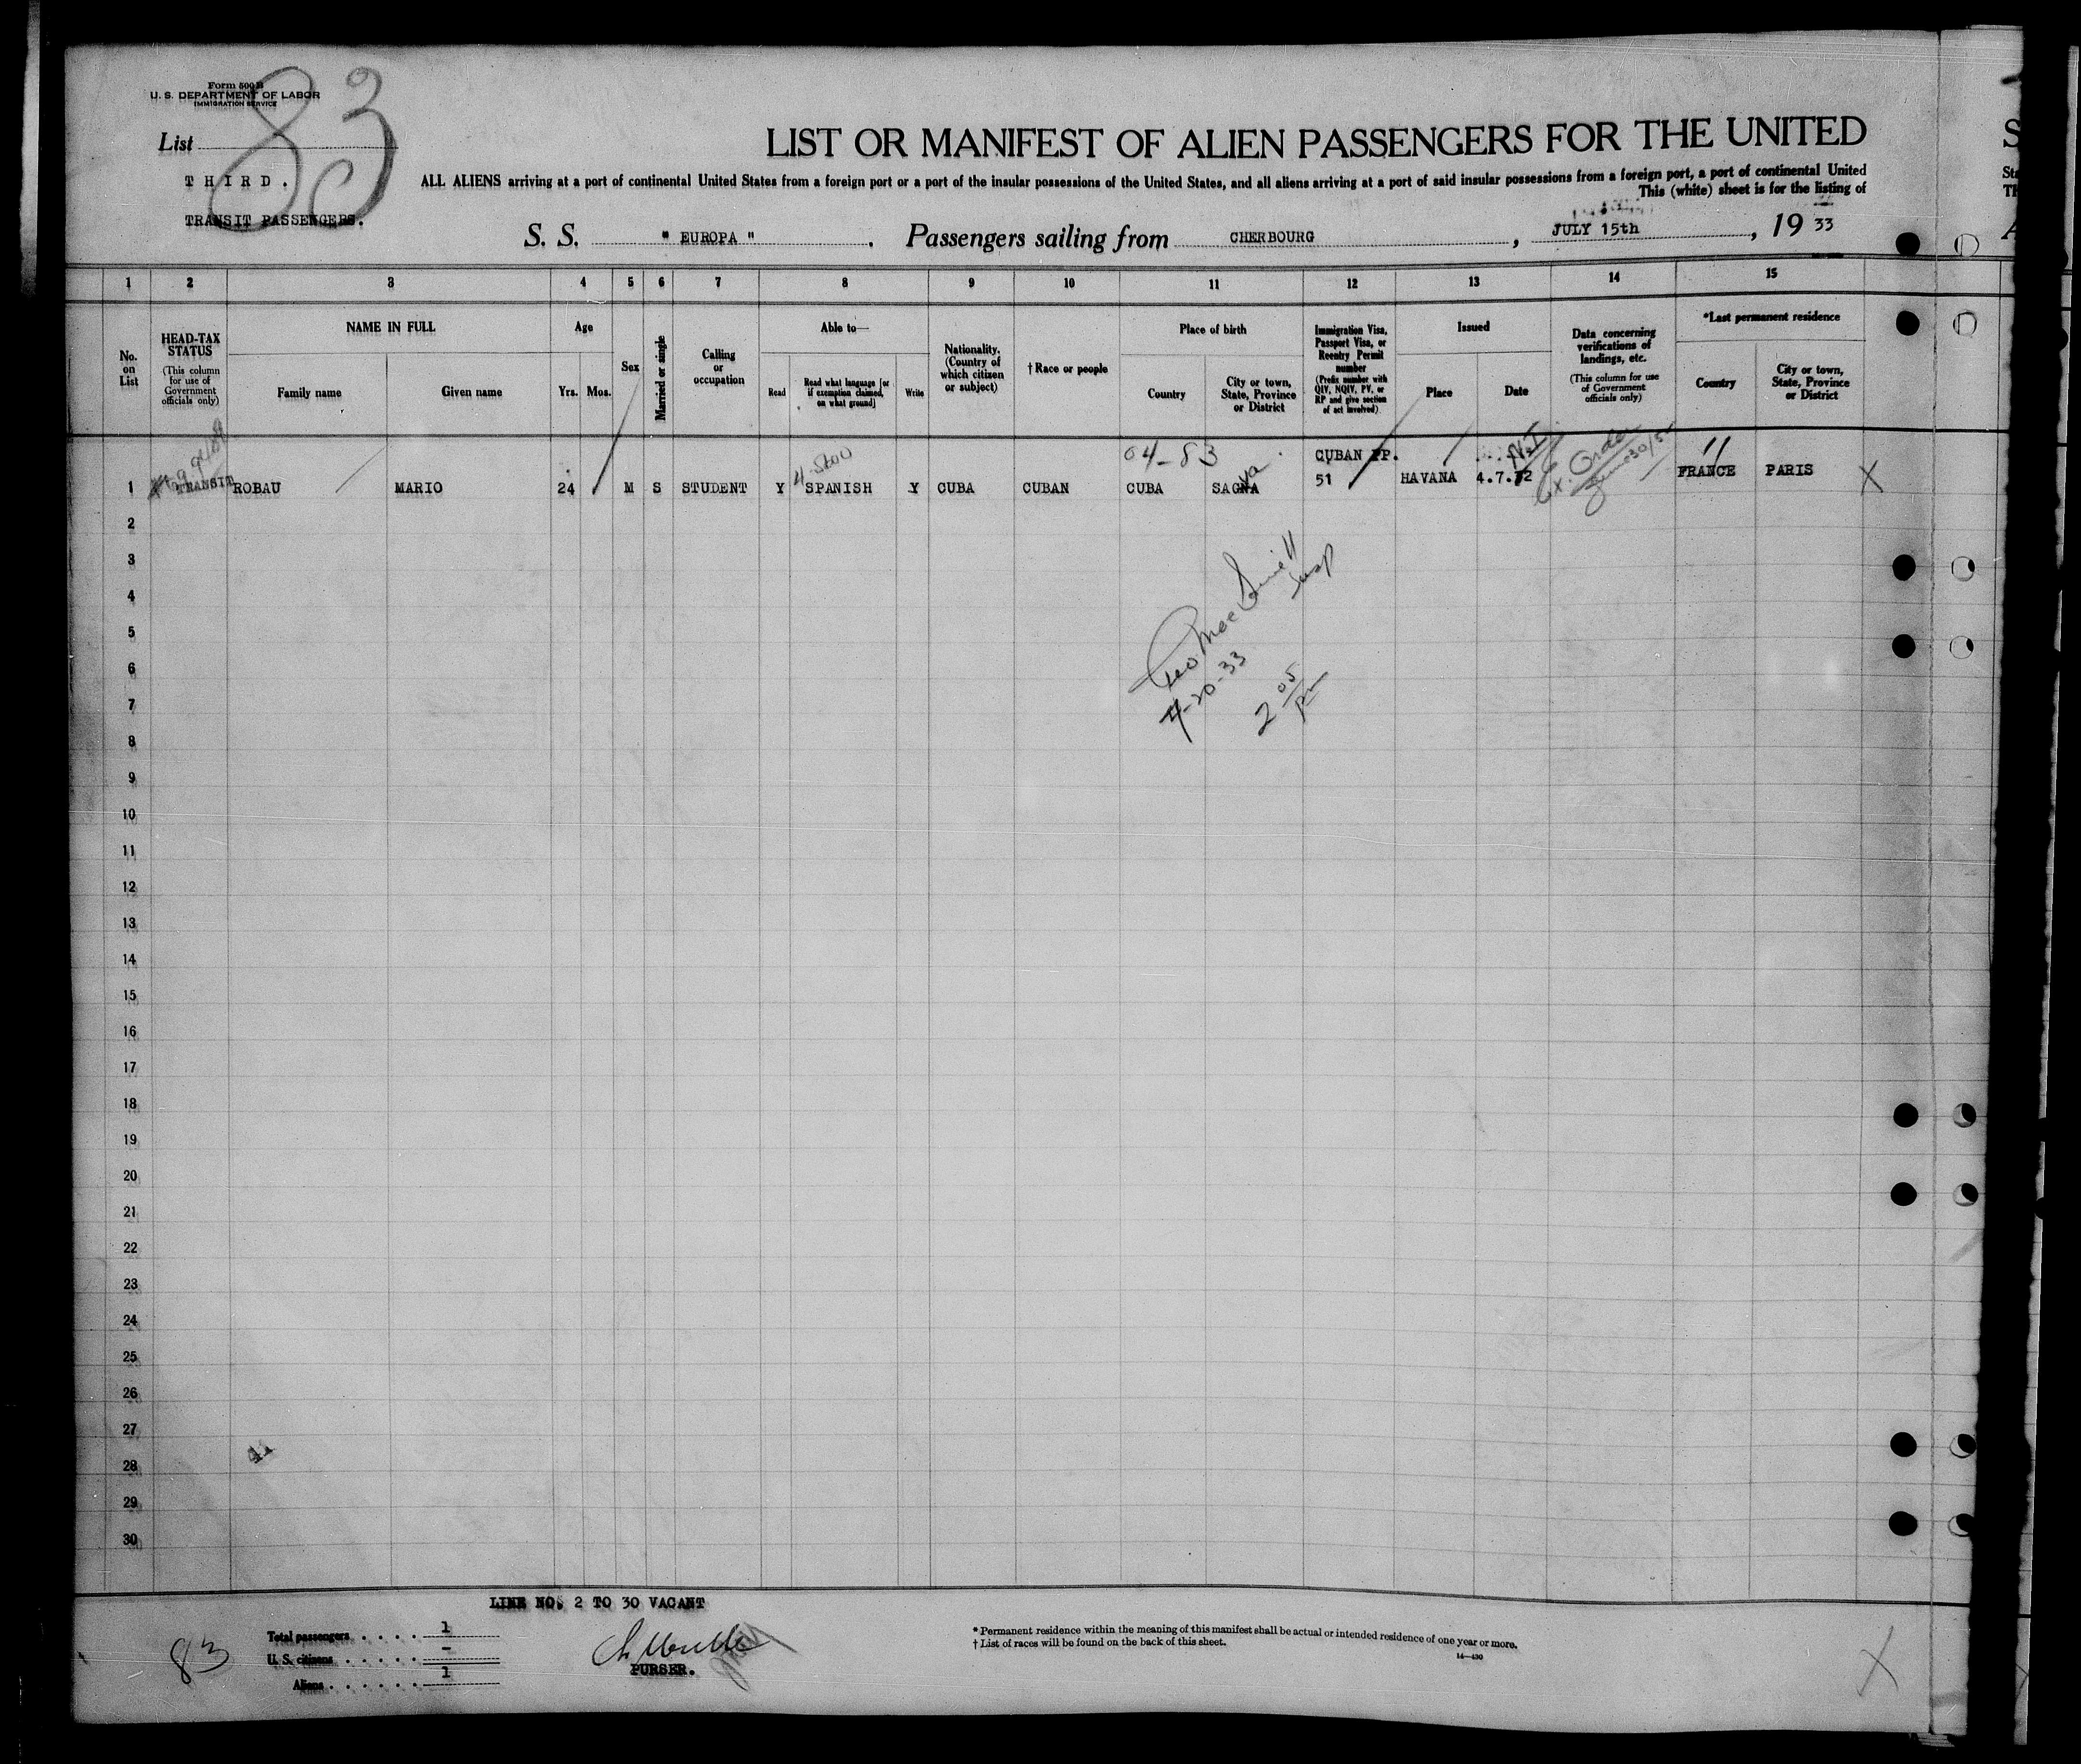 Form 500 B
U. S. DEPARTMENT OF LABOR
IMMIGRATION SERVICE
List
83
THIRD.
TRANSIT PASSENGERS.
LIST OR MANIFEST OF ALIEN PASSENGERS FOR THE UNITED
ALL ALIENS arriving at a port of continental United States from a foreign port or a port of the insular possessions of the United States, and all aliens arriving at a port of said insular possessions from a foreign port, a port of continental United
This (white) sheet is for the listing of
S. S. " EUROPA " . Passengers sailing from CHERBOURG , JULY 15th , 19 33
1 2 3 4 5 6 7 8 9 10 11 12 13 14 15
No. on List
HEAD-TAX STATUS (This column for use of Government officials only)
NAME IN FULL
Family name
Given name
Age
Yrs. Mos.
Sex
Married or single
Calling or occupation
Able to—
Read
Read what language [or if exemption claimed, on what ground]
Write
Nationality. (Country of which citizen or subject)
† Race or people
Place of birth
Country
City or town, State, Province or District
Immigration Visa, Passport Visa, or Reentry Permit number (Prefix number with QIV, NQIV, PV, or RP and give section of act involved)
Issued
Place
Date
Data concerning verifications of landings, etc. (This column for use of Government officials only)
*Last permanent residence
Country
City or town, State, Province or District
04-83
CUBAN PP.
1 TRANSIT ROBAU MARIO 24 M S STUDENT Y SPANISH Y CUBA CUBAN CUBA SAGNA 51 HAVANA FRANCE PARIS X
2
3
4
5
6
7
8
9
10
11
12
13
14
15
16
17
18
19
20
21
22
23
24
25
26
27
28
29
30
2 05
LINE NO. 2 TO 30 VACANT
83
Total passengers . . . . . 1
U. S. citizens . . . . . –
Aliens . . . . . . 1
PURSER.
* Permanent residence within the meaning of this manifest shall be actual or intended residence of one year or more.
† List of races will be found on the back of this sheet.
14—430
X